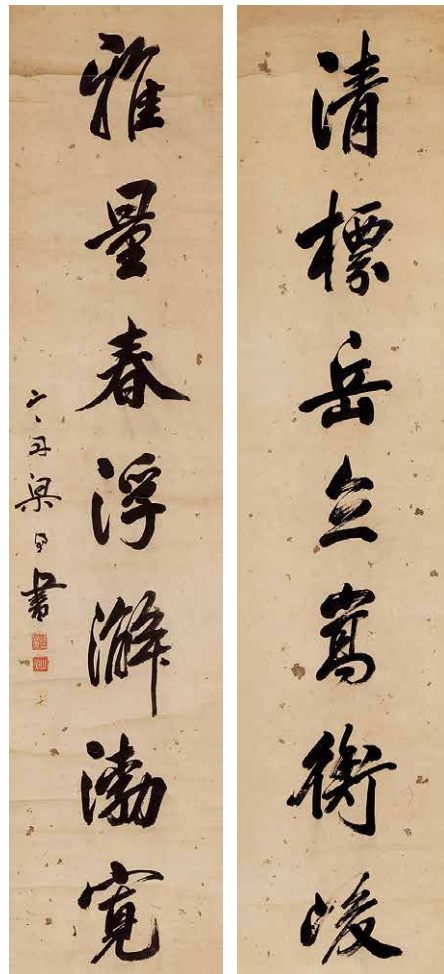 清標岳立嵩衡峻
雅量春浮澥渤寬
山舟梁同書